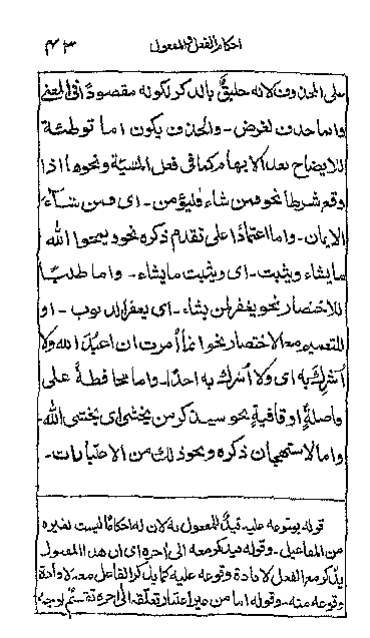 احكام الفعل والمفعول ٤٣
على المحذوف لانه حليق بالذكر لكونه مقصودا فى المعنى
واما حذف لغرض - والحذف يكون اما توطئة
للايضاح بعد الابهام كما فى فعل المشيّة ونحوها اذا
وقع شرطا نحو فمن شاء فليؤمن - اى فمن شاء
الايمان - واما اعتمادا على تقدم ذكره نحو يمحوا الله
ما يشاء ويثبت - اى ويثبت ما يشاء - واما طلبا
للاختصار نحو يغفر لمن يشاء - اى يغفر الذنوب - او
للتعميم مع الاختصار نحو انما أمرت ان اعبد الله ولا
أشرك به اى ولا أشرك به احدا - واما محافظة على
فاصلة او قافية نحو سيذكر من يخشى اى يخشى الله -
واما لاستهجان ذكره ونحو ذلك من الاعتبارات -
قوله بوقوعه عليه قيد للمفعول به لان له احكاما ليست لغيره
من المفاعيل - وقوله فيذكر معه الى اخره اى ان هذا المفعول
يذكر مع الفعل لافادة وقوعه عليه كما يذكر الفاعل معه لافادة
وقوعه منه - وقوله اما من غير اعتبار تعلقه الى اخره